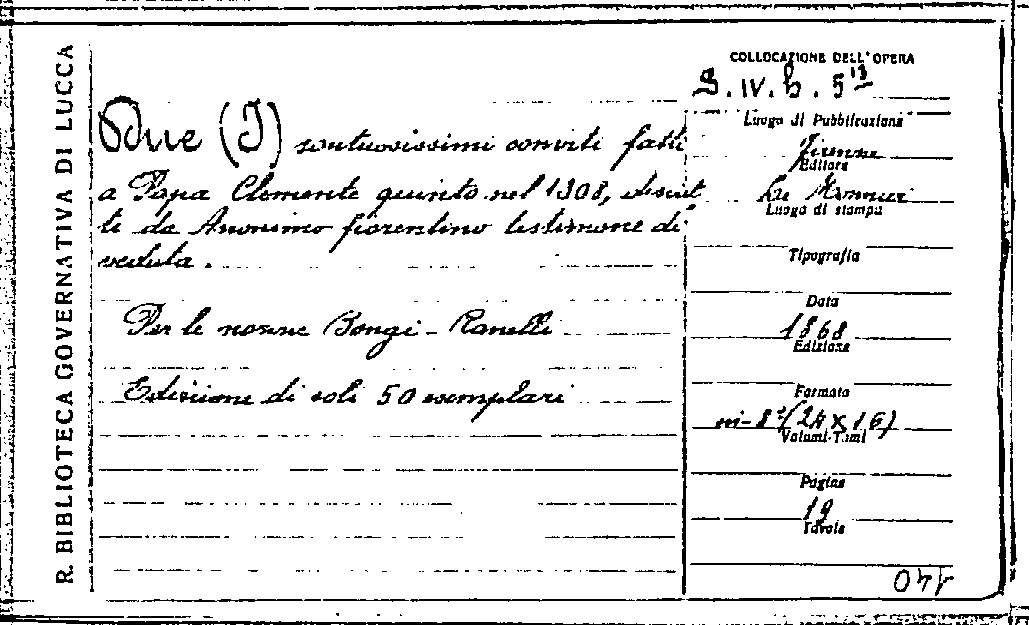 R. BIBLIOTECA GOVERNATIVA DI LUCCA
Due (I) sontuosissimi conviti fatti
a Papa Clemente quinto nel 1308, descrit
ti da Anonimo fiorentino testimone di
veduta.
Per le nozze Bongi - Ranelli
Edizione di soli 50 esemplari
COLLOCAZIONE DELL'OPERA
Luogo di Pubblicazione
Firenze
Editore
Le Monnier
Luogo di stampa
Tipografia
Data
1868
Edizione
Formato
in-8° (24 x 16)
Volumi-Tomi
Pagine
19
Tavole